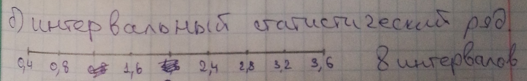 б) интервальный статистический ряд
0,4 0,8 1,6 2,4 2,8 3,2 3,6 8 интервалов